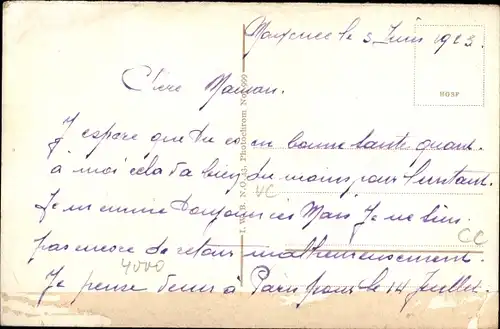 le 3 Juin 1923
Chère Maman.
J'espère que tu es en bonne santé quant
a moi cela va bien du moins pour l'instant.
Je m'ennuie toujours ici Mais Je ne suis
pas encore de retour malheureusement.
Je pense venir à Paris pour le 14 Juillet.
NGSF
Photochrom
VC
CC
4000